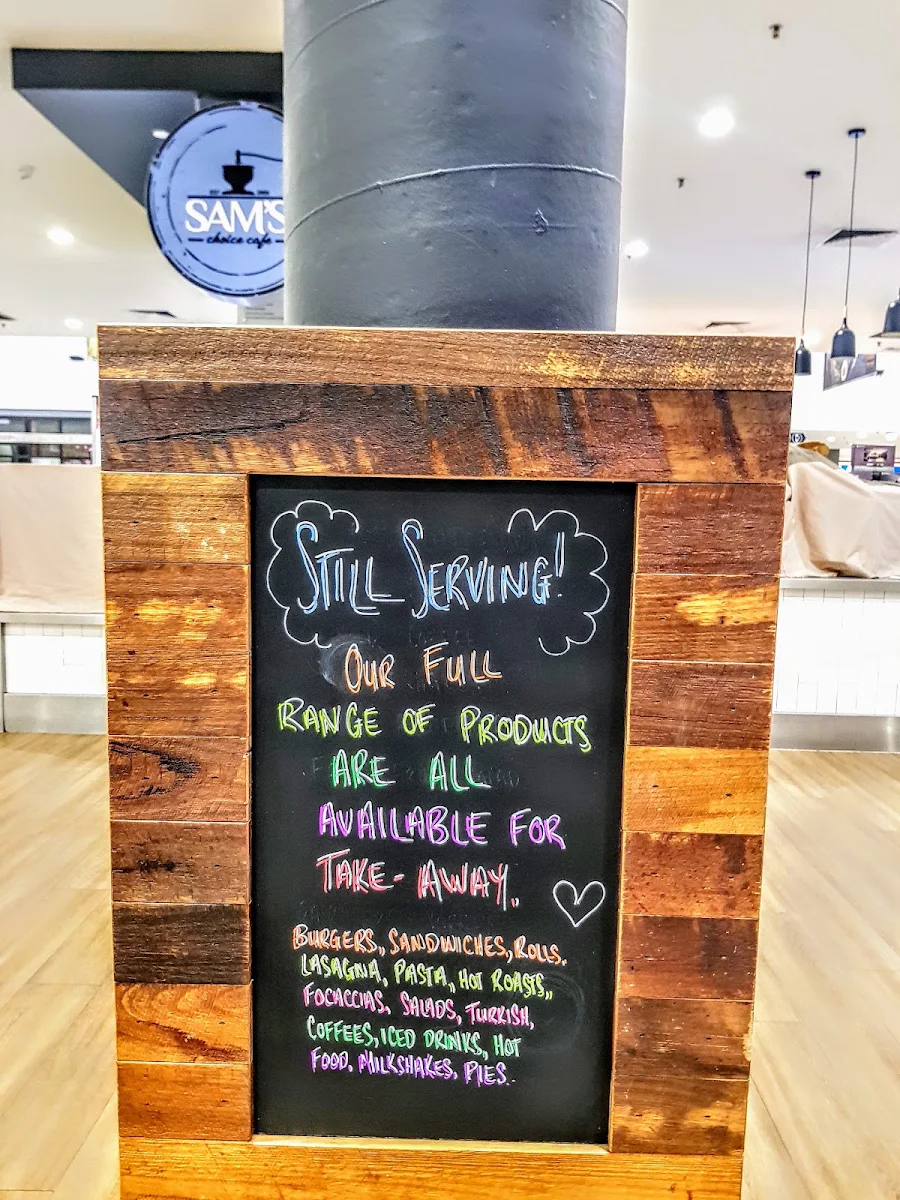 SAM'S
choice cafe
STILL SERVING!
OUR FULL
RANGE OF PRODUCTS
ARE ALL
AVAILABLE FOR
TAKE-AWAY.
BURGERS, SANDWICHES, ROLLS.
LASAGNA, PASTA, HOT ROASTS,
FOCACCIAS, SALADS, TURKISH,
COFFEES, ICED DRINKS, HOT
FOOD, MILKSHAKES, PIES.